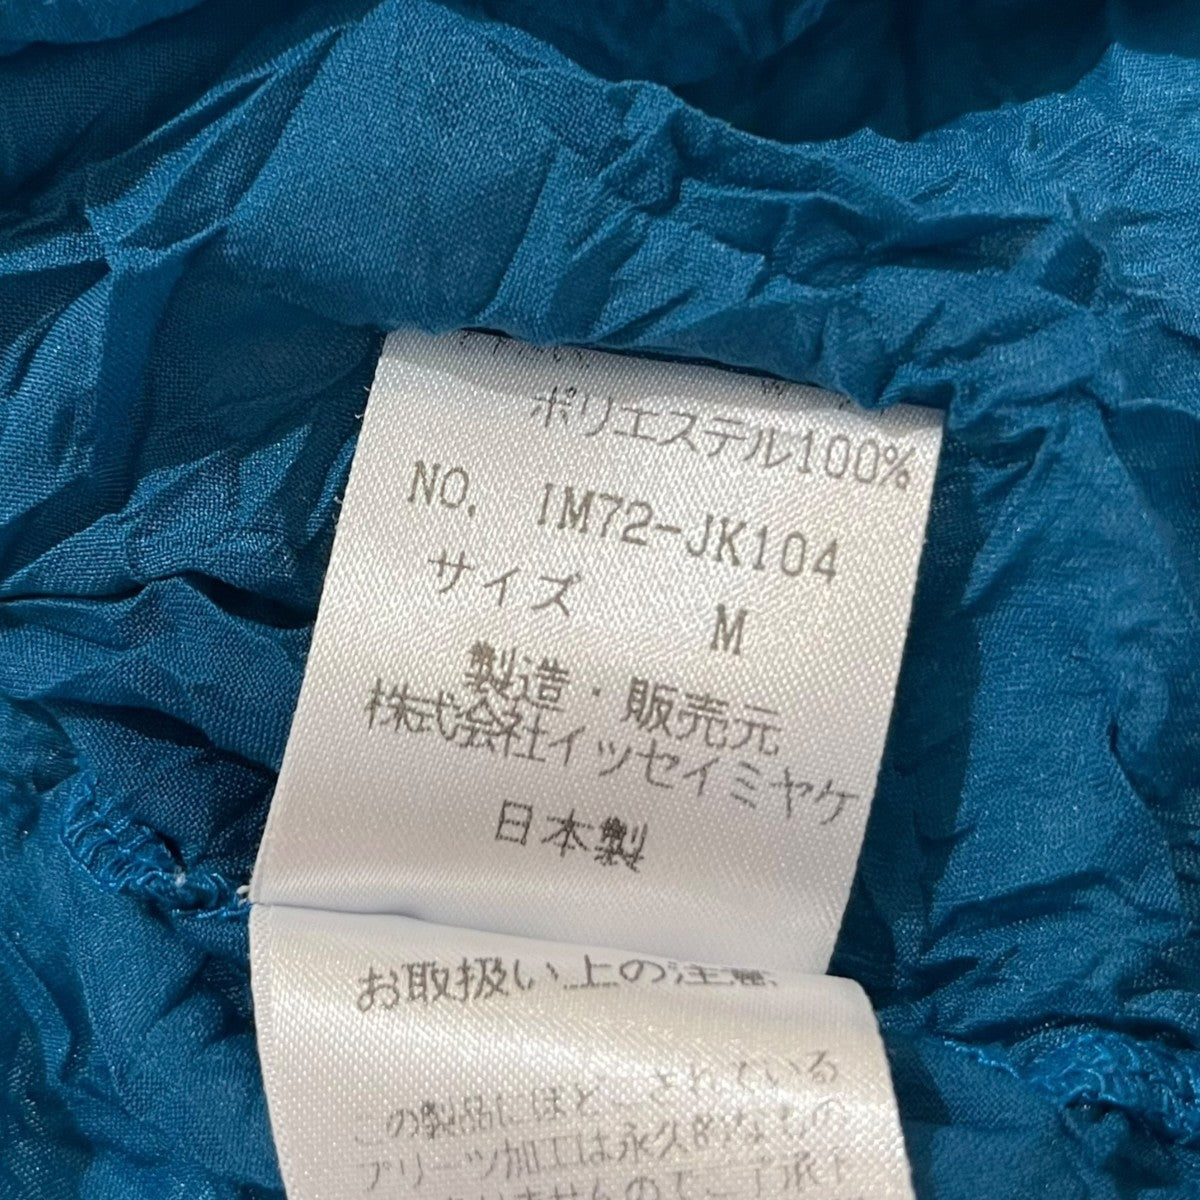 ポリエステル100%
NO. IM72-JK104
サイズ M
製造・販売元
株式会社イッセイミヤケ
日本製
お取扱い上の注意
この製品にほどこされている
プリーツ加工は永久的なもの
ありませんのでご了承下